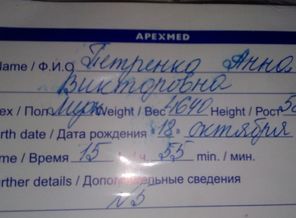 APEXMED
Name / Ф.И.О Петренко Анна
Викторовна
ex / Пол Муж Weight / Вес 4640 Height / Рост 5
rth date / Дата рождения 13 октября
me / Время 15 ч. 55 min. / мин.
urther details / Дополнительные сведения